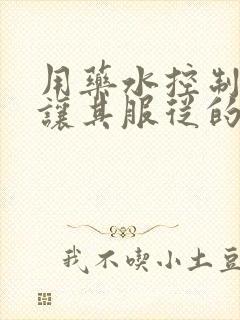 用藥水控制
讓其服從的
我不喫小土豆